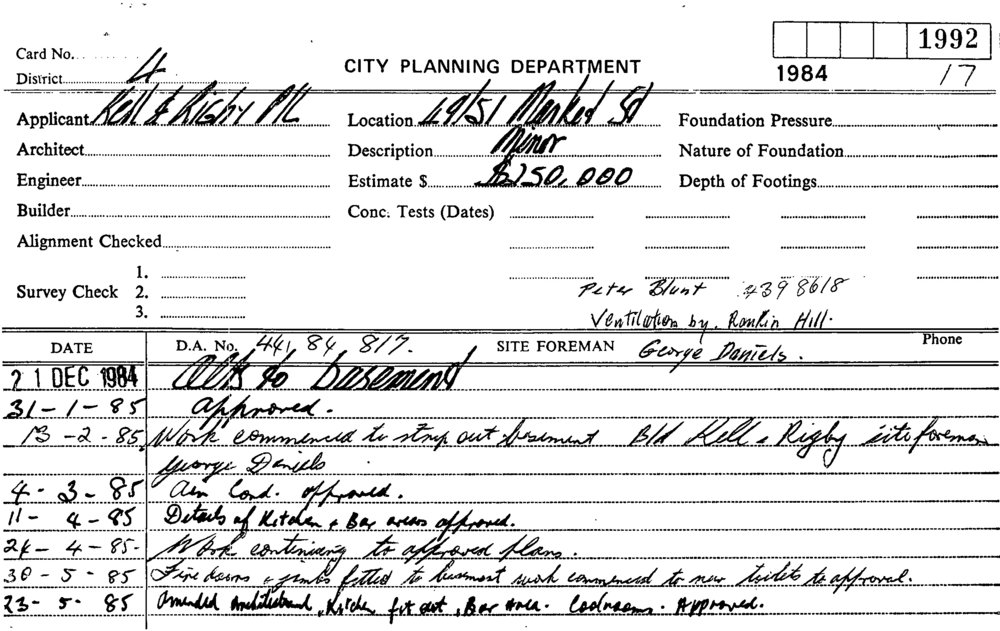 1992
Card No.
CITY PLANNING DEPARTMENT
1984 17
District 4
Applicant Kell & Rigby P/L Location 49/51 Market St Foundation Pressure
Architect Description Minor Nature of Foundation
Engineer Estimate $ $250,000 Depth of Footings
Builder Conc. Tests (Dates)
Alignment Checked
1.
Survey Check 2. Peter Blunt 439 8618
3. Ventilation by. Rankin Hill.
DATE D.A. No. 441, 84, 817. SITE FOREMAN George Daniels. Phone
21 DEC 1984 Alts to basement
31-1-85 approved.
13-2-85 Work commenced to strip out basement Bld Kell & Rigby site foreman
George Daniels
4-3-85 Air Cond. approved.
11-4-85 Details of Kitchen & Bar areas approved.
24-4-85. Work continuing to approved plans.
30-5-85 Fire doors & jambs fitted to basement work commenced to new toilets to approval.
23-5-85 Amended Kitchen fit out, Bar Area. Coolrooms. Approved.